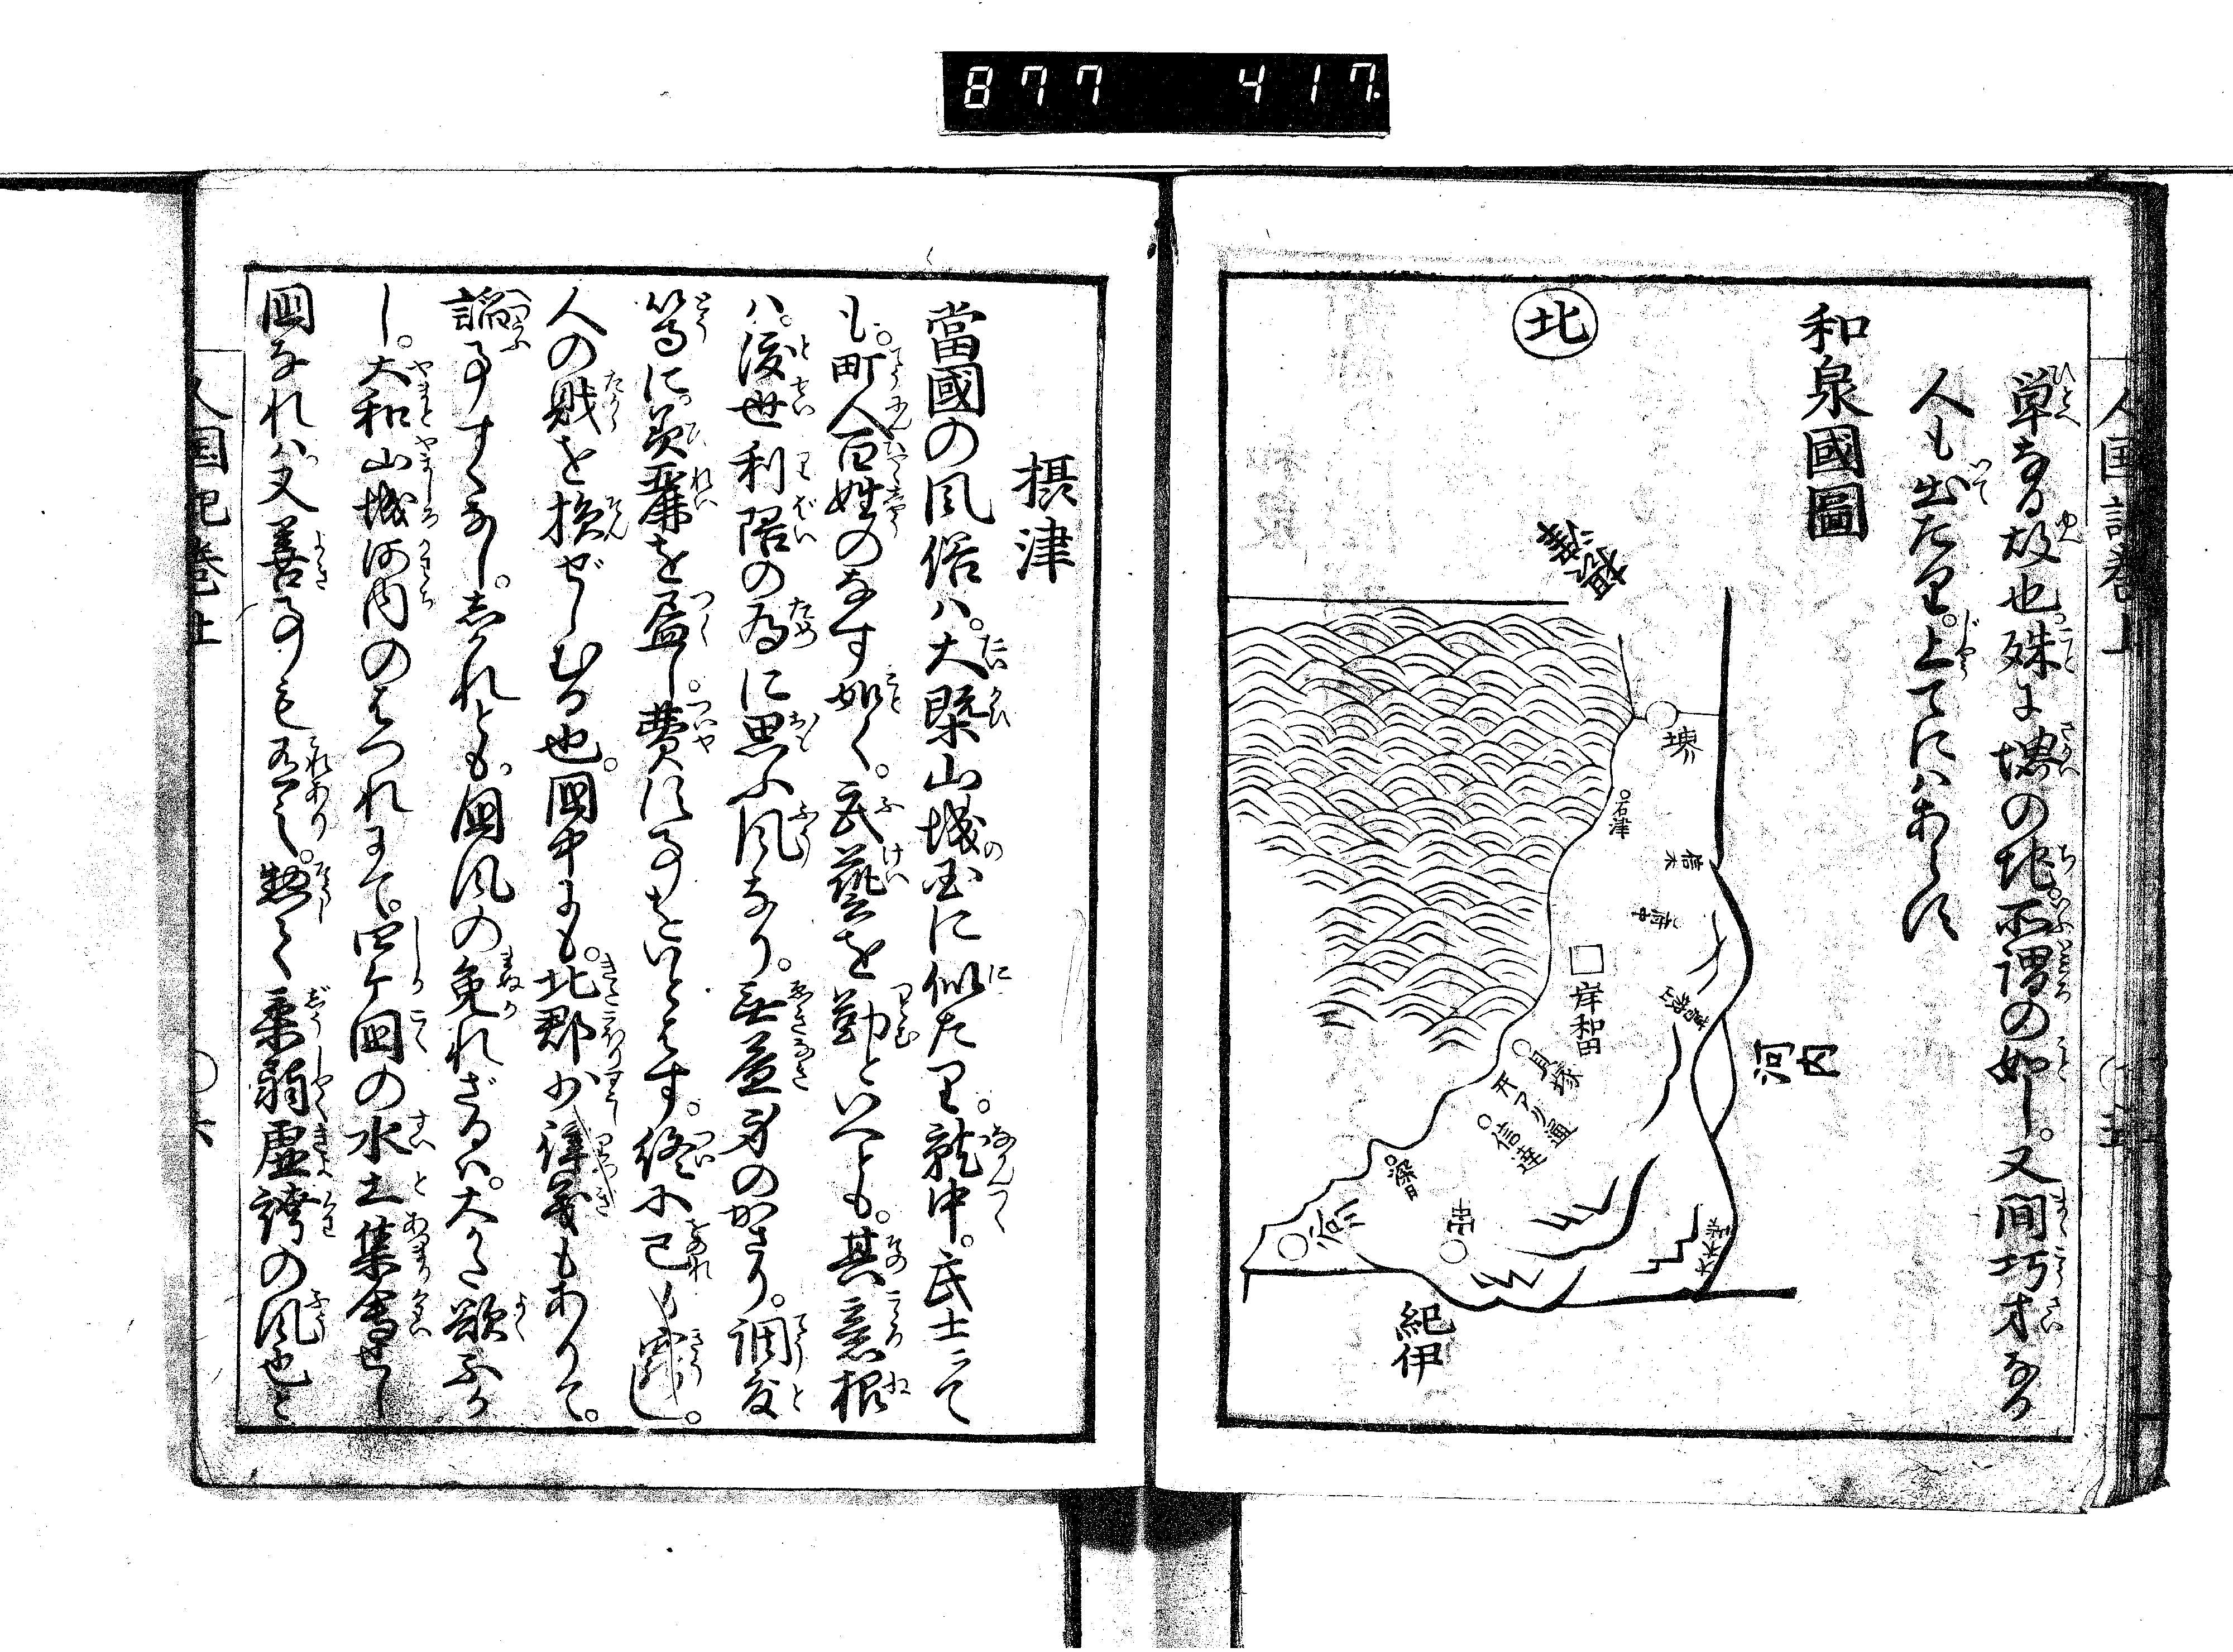 877 417
人国記巻上
単なる故也。殊に堺の地。所謂の如し。又間巧才なる
人も出たり。上てにハあらす
和泉國圖
北
摂津
堺
石津
岸和田
貝塚
信達
深日
河内
紀伊
摂津
當國の風俗ハ。大槩山城国に似たり。就中。武士にて
も。町人百姓のなす如く。武藝を勤といへとも。其意根
ハ。渡世利陪の為に思ふ風なり。無益身のかさり。調度
等に美麗を尽し。費にする事をいとはす。終に己も窮し。
人の財を損ぜしむる也。國中にも。北郡少律義もありて。
諂事すくなし。しかれとも。國風の免れざるハ。大かた欲ふか
し。大和山城河内のはつれにて。四ケ國の水土集會せし
國なれハ。又善事も有之。惣して柔弱虚誇の風也と
人国記巻上